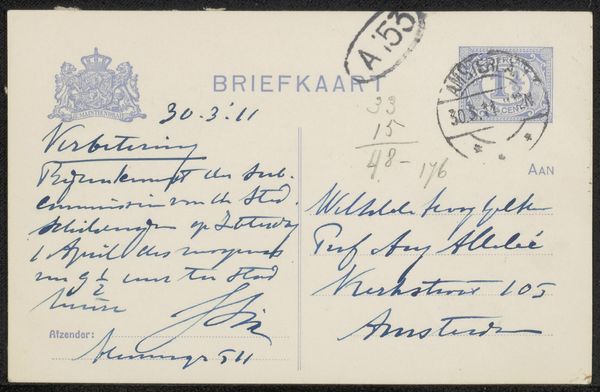 A '53
BRIEFKAART
JE MAINTIENDRAI
AMSTERDAM
30.3.11
1½
CENT
30.3.'11
Verbetering
Bijeenkomst der sub-
commissie van de Stads
schilderijen op Zaterdag
1 April des morgens
om 9½ uur ten Stad
huize
Afzender:
511
33
15
48-
176
AAN
Prof Aug Allebé
Kerkstraat 105
Amsterdam